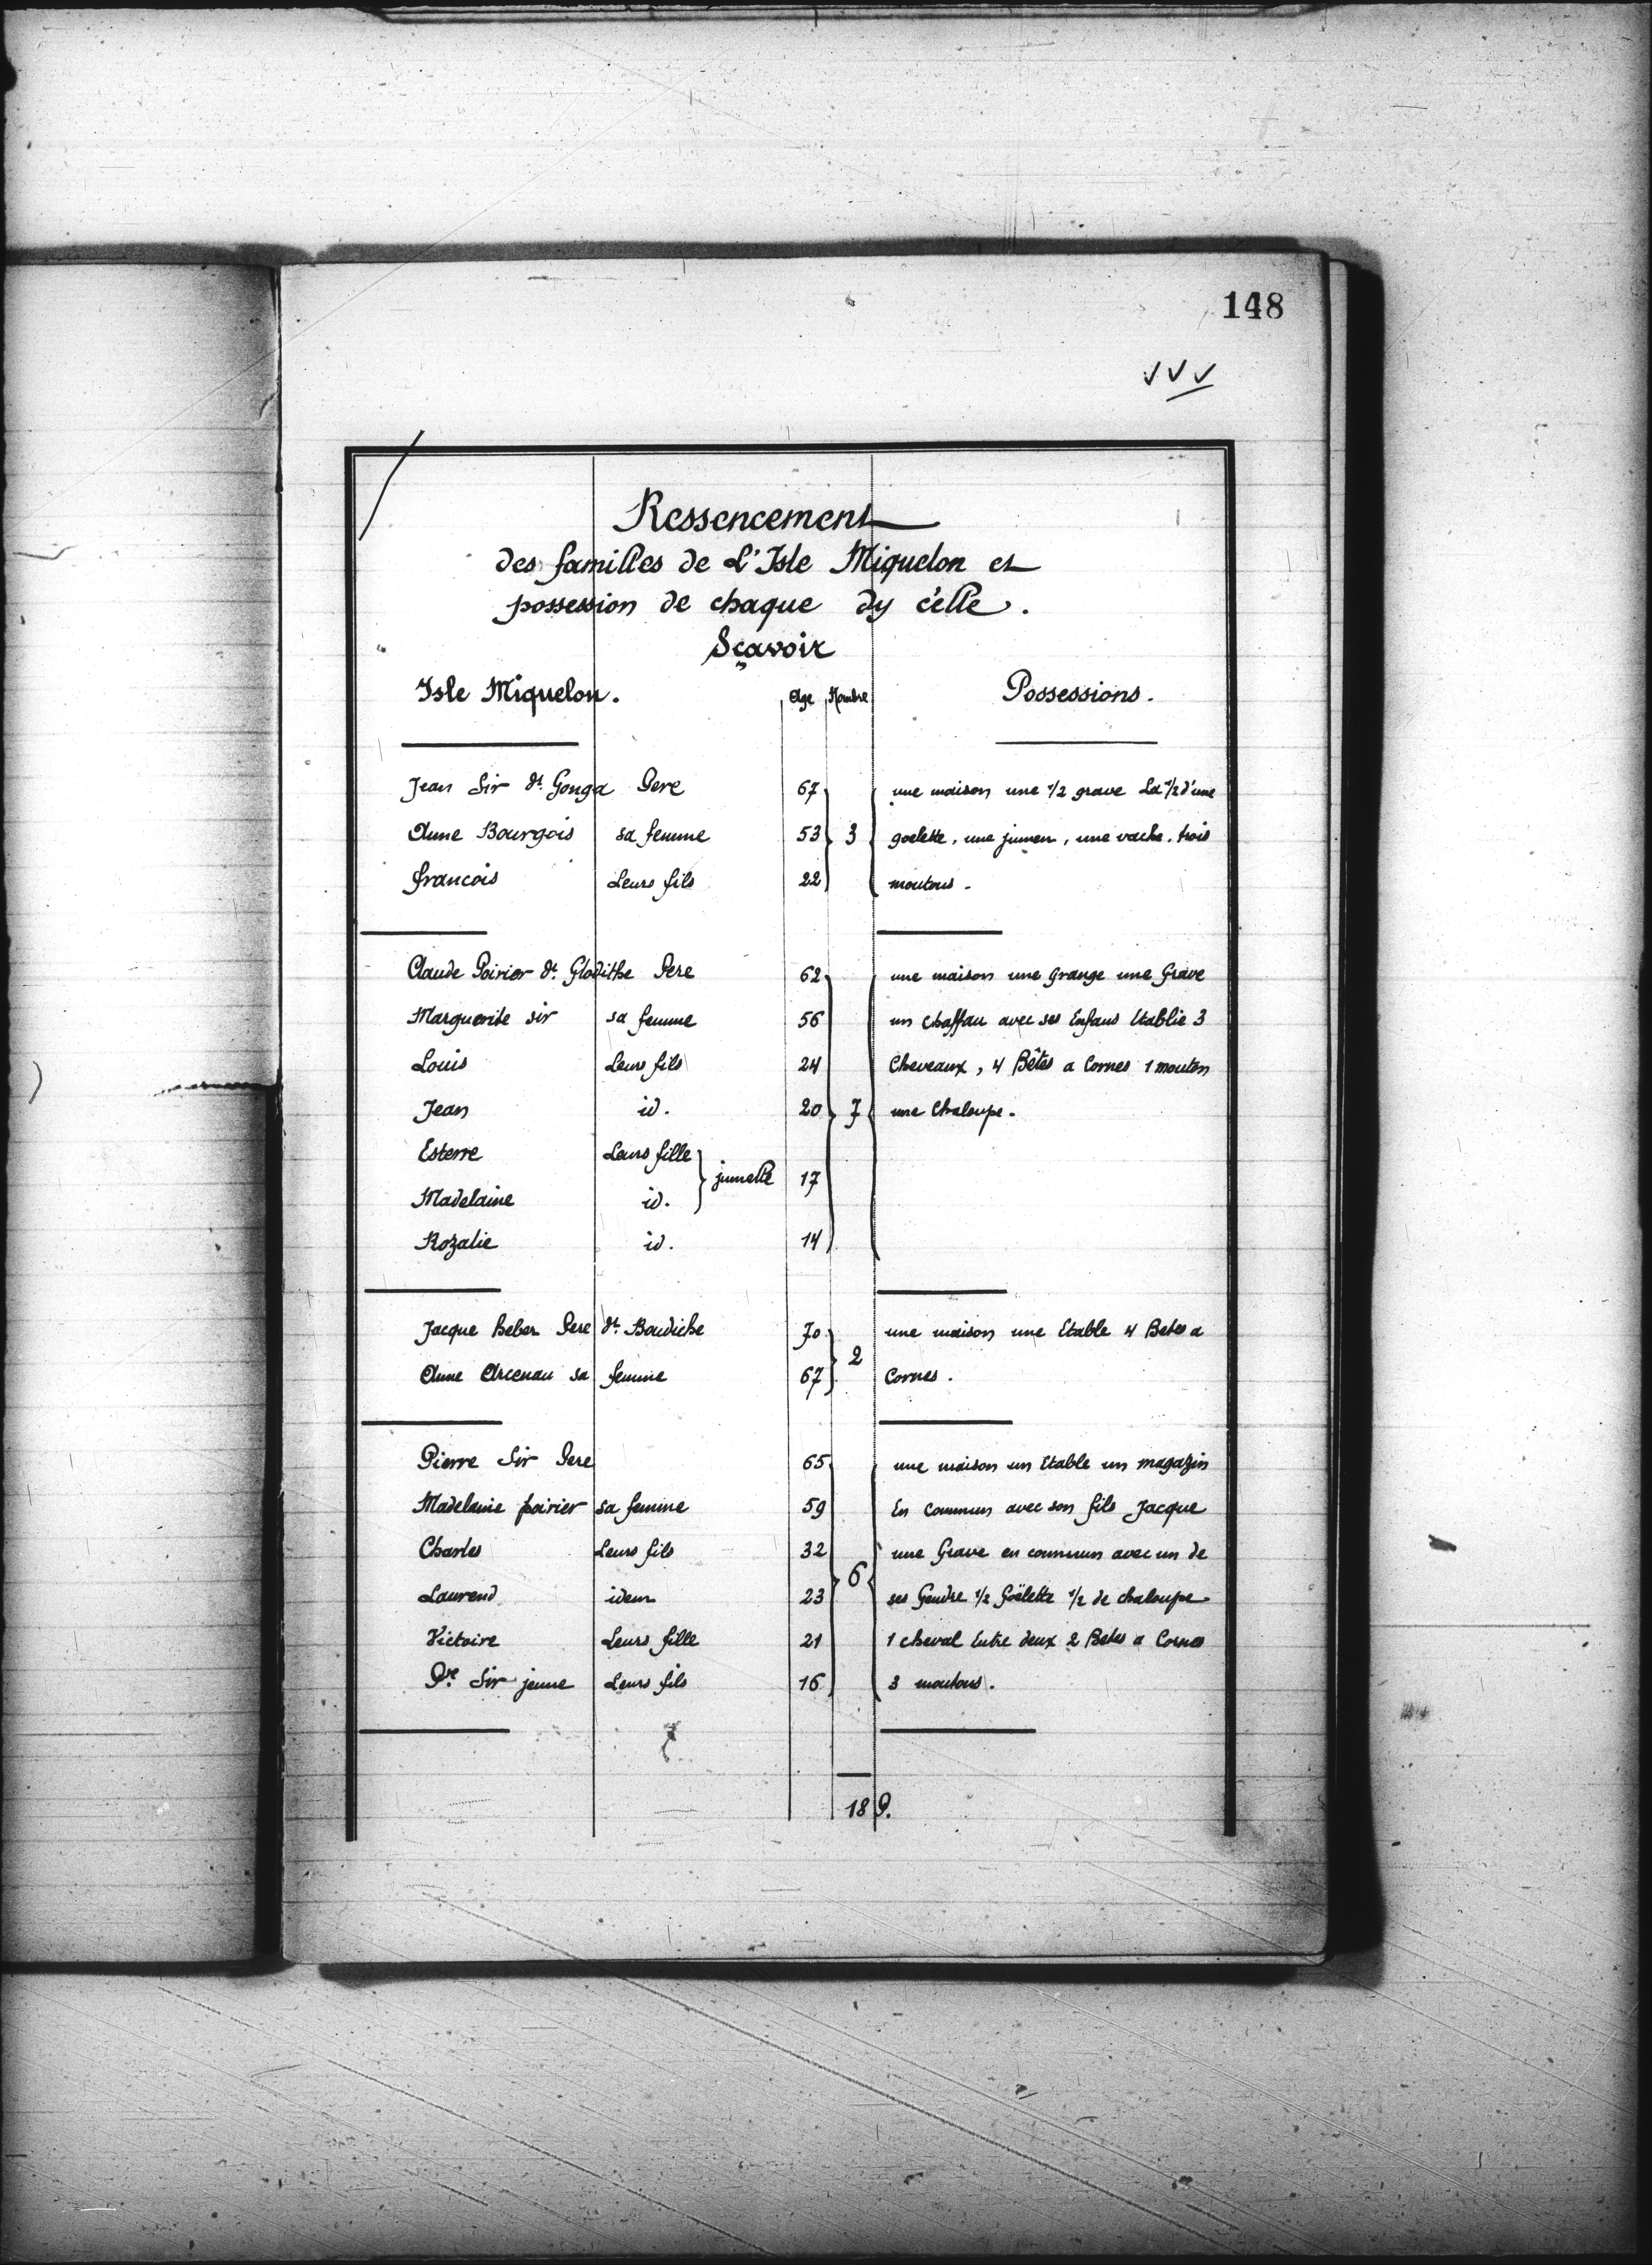 148
Ressencement
des familles de L'Isle Miquelon et
possession de chaque dy c'elle.
Sçavoir
Isle Miquelon. Age Nombre Possessions.
Jean Sir dt. Gonga Pere 67 une maison une 1/2 grave La 1/2 d'une
Anne Bourgois sa femme 53 3 goelette, une jumen, une vache, trois
francois Leurs fils 22 moutons.
Claude Poirier dt. Glodithe Pere 62 une maison une grange une Grave
Marguerite sir sa femme 56 un chaffau avec ses Enfans Etablie 3
Louis Leurs fils 24 Cheveaux, 4 Bêtes a Cornes 1 mouton
Jean id. 20 7 une Chaloupe.
Esterre Leurs fille
jumelle 17
Madelaine id.
Rozalie id. 14
Jacque heber Pere dt. Boudiche 70 une maison une Etable 4 Betes a
2
Anne Arcenau sa femme 67 Cornes.
Pierre Sir Pere 65 une maison un Etable un magazin
Madelaine poirier sa femme 59 En commun avec son fils Jacque
Charles Leurs fils 32 une Grave en commun avec un de
6
Laurend idem 23 ses Gendre 1/2 Goëlette 1/2 de chaloupe
Victoire Leurs fille 21 1 cheval Entre deux 2 Betes a Cornes
Pre. Sir jeune Leurs fils 16 3 moutons.
18 P.